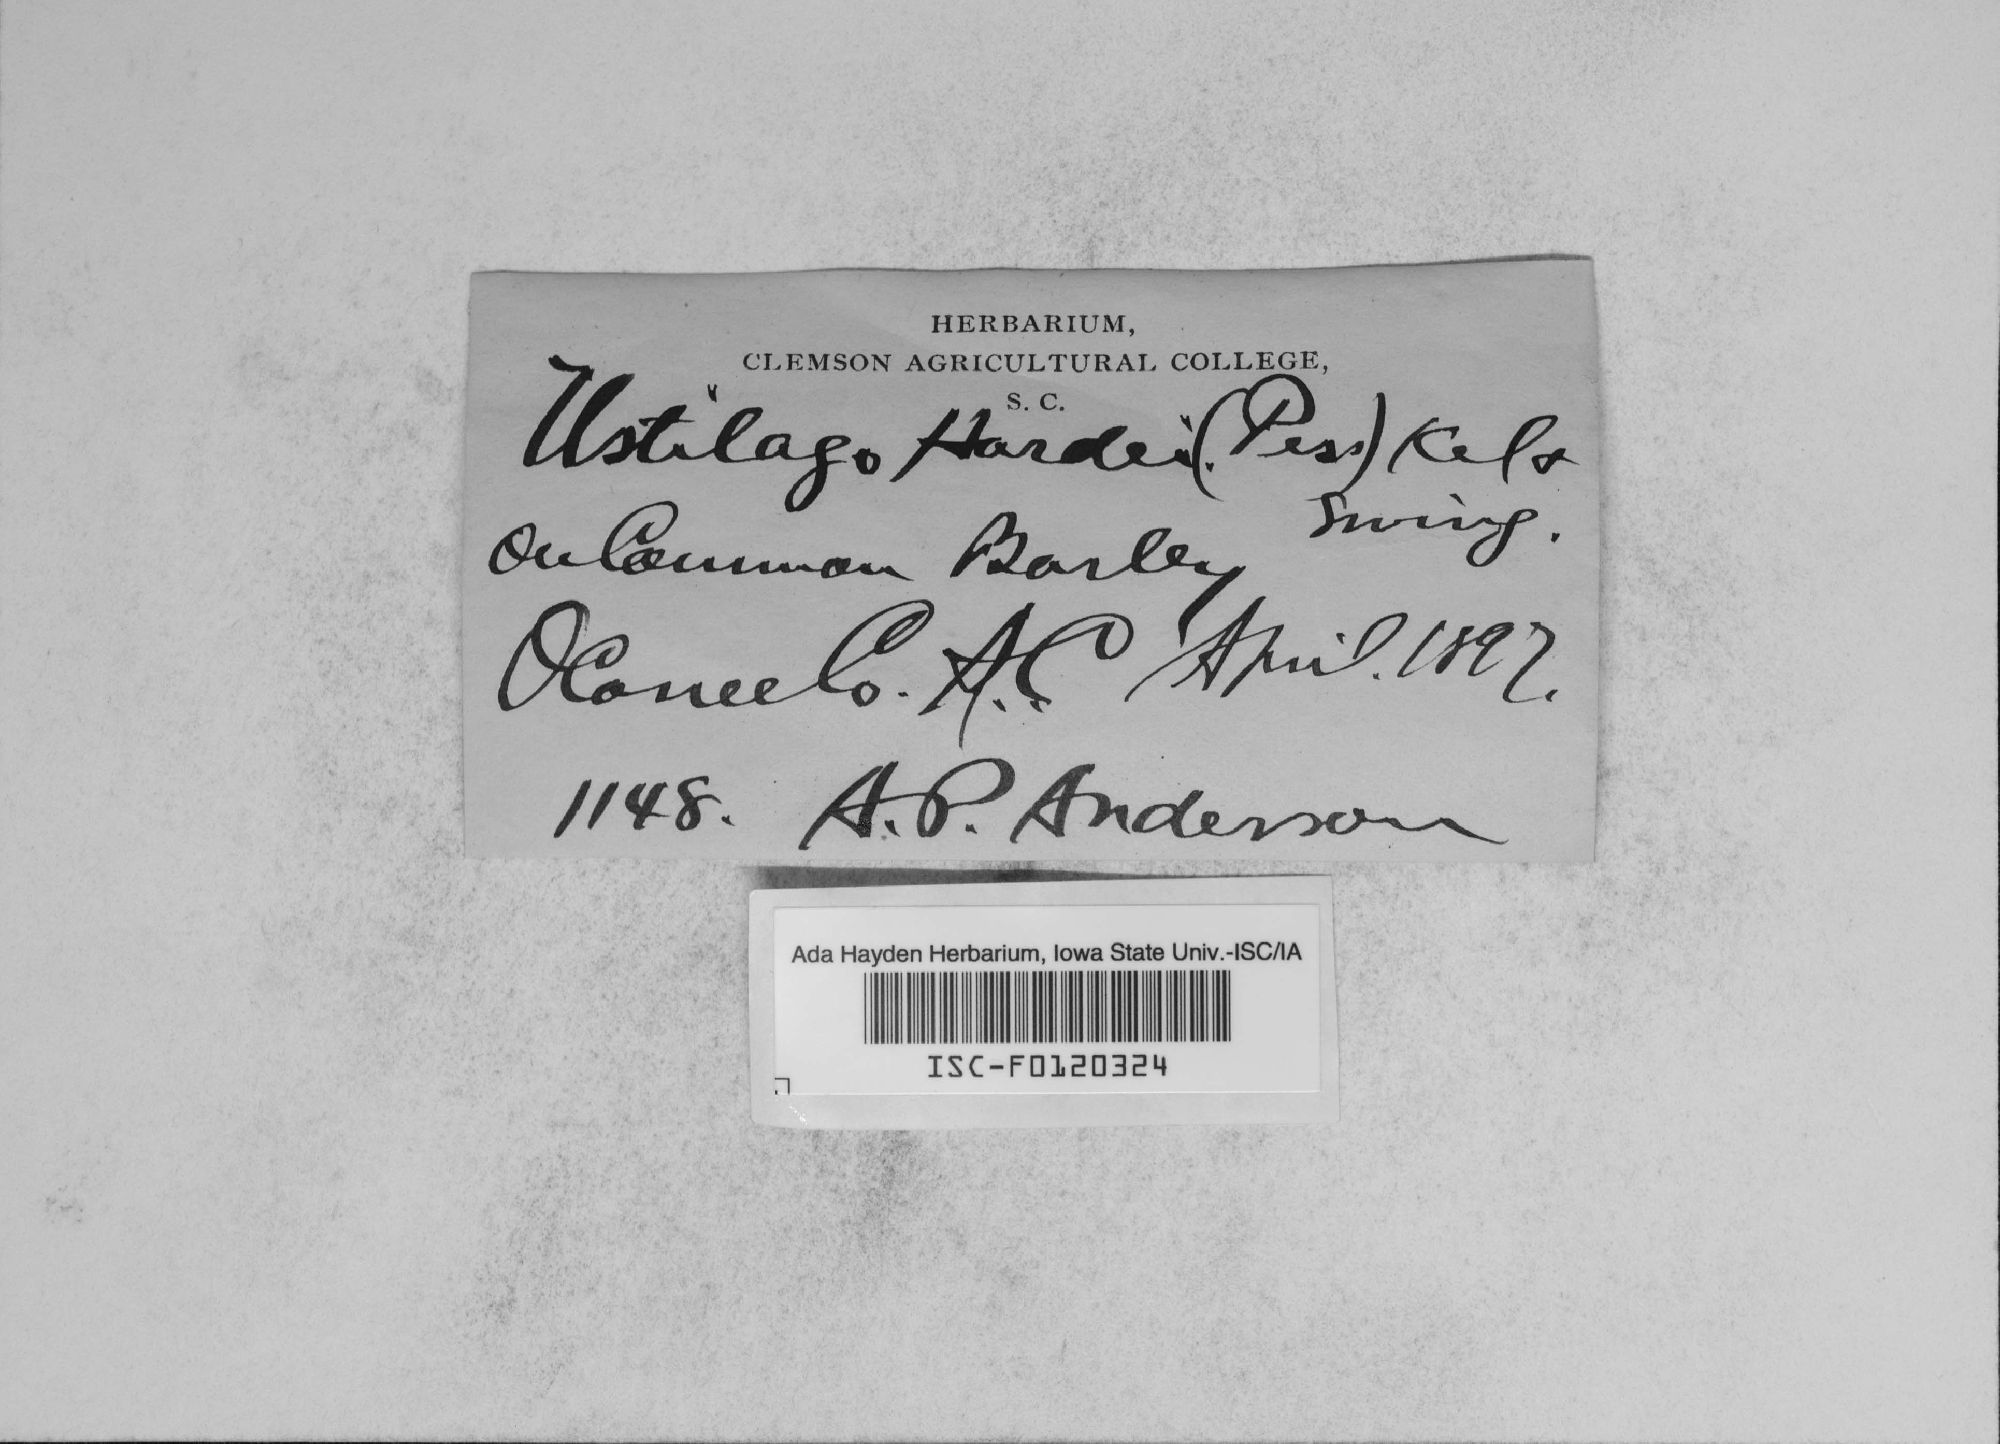 HERBARIUM,
CLEMSON AGRICULTURAL COLLEGE,
S. C.
Ustilago Hordei (Pers) Kel &
Swing.
On Common Barley
Oconee Co. S.C April. 1897.
1148. A.P. Anderson
Ada Hayden Herbarium, Iowa State Univ.-ISC/IA
ISC-F0120324